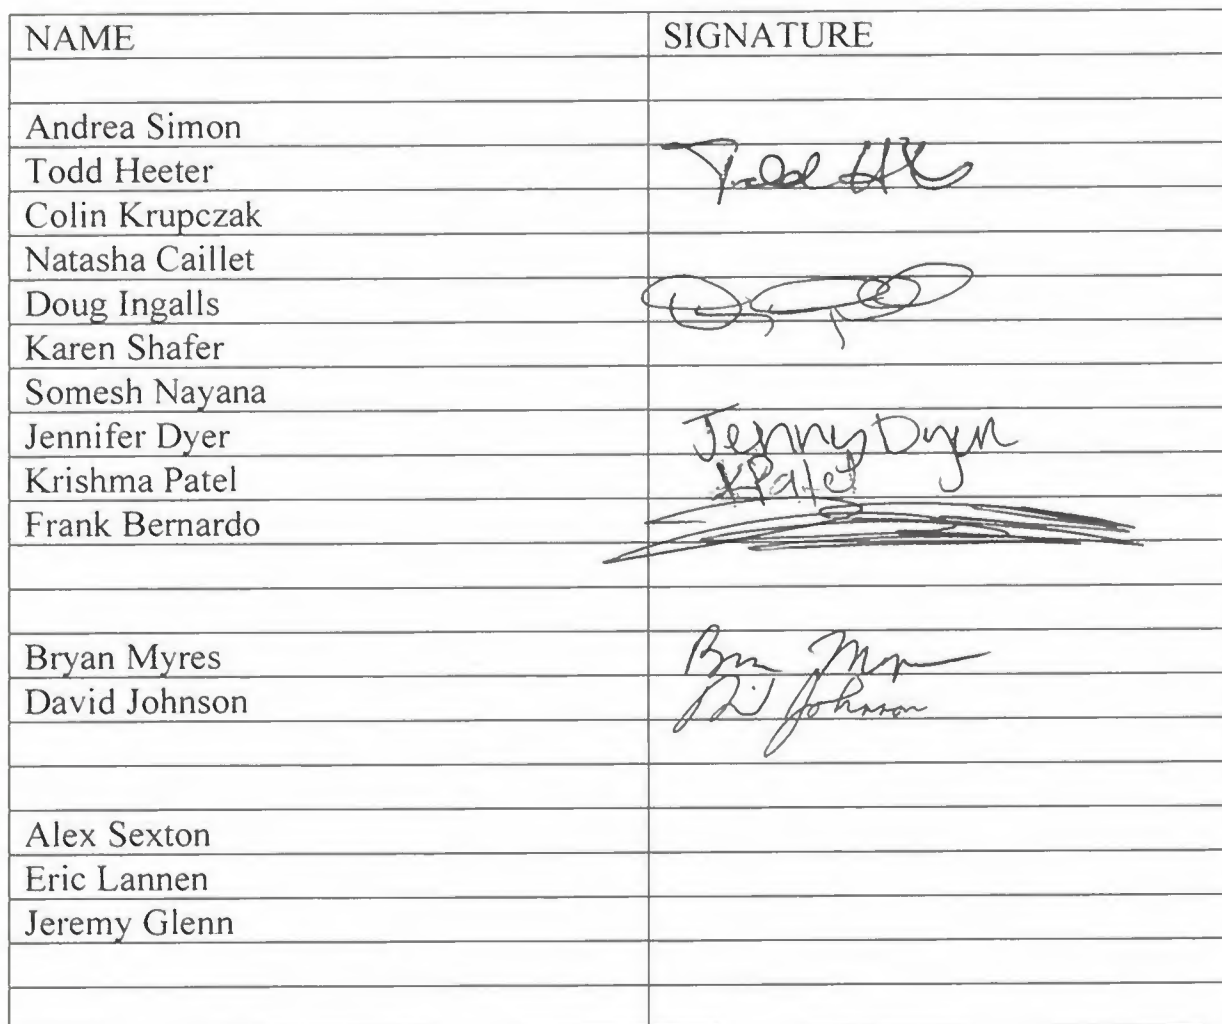 NAME SIGNATURE
Andrea Simon
Todd Heeter Todd
Colin Krupczak
Natasha Caillet
Doug Ingalls
Karen Shafer
Somesh Nayana
Jennifer Dyer Jenny Dyer
Krishma Patel KPatel
Frank Bernardo
Bryan Myres
David Johnson Johnson
Alex Sexton
Eric Lannen
Jeremy Glenn